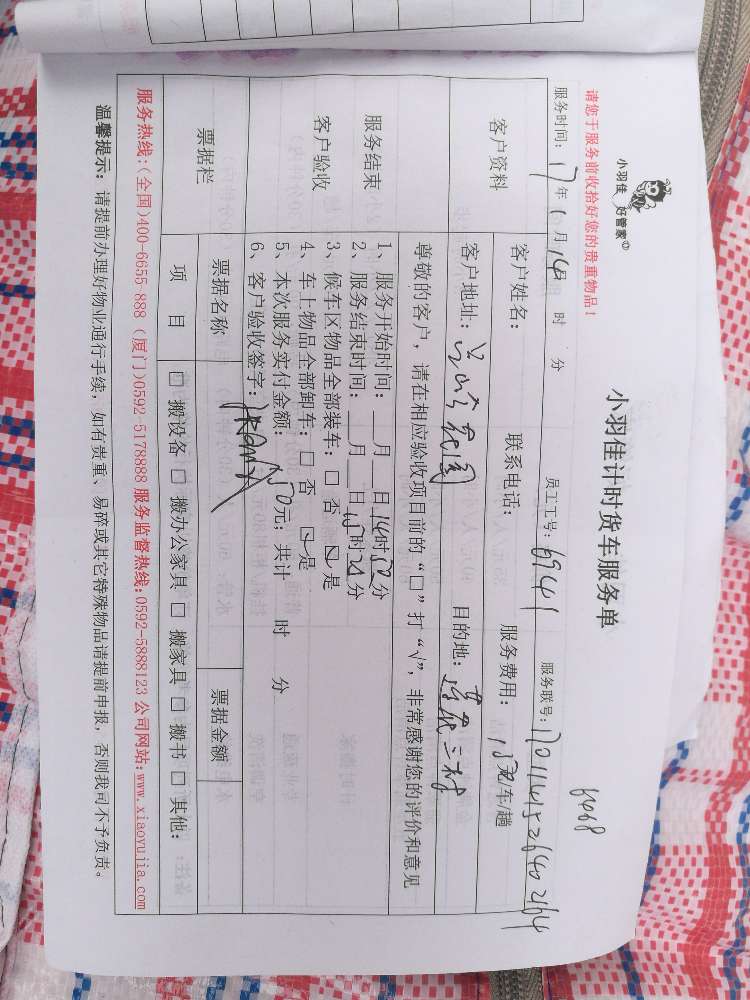 小羽佳 好管家
小羽佳计时货车服务单
6468
请您于服务前收拾好您的贵重物品!
服务时间: 17年 月14 时 分 员工工号: 6941 服务联号:
客户资料
客户姓名: 联系电话: 服务费用: 150元/车/趟
客户地址: 花园 目的地: 莲花三村
尊敬的客户,请在相应验收项目前的“□”打“√”,非常感谢您的评价和意见
服务结束
客户验收
1、服务开始时间:__月__日14时50分
2、服务结束时间:__月__日15时20分
3、候车区物品全部装车:□ 否 ☑ 是
4、车上物品全部卸车:□ 否 ☑ 是
5、本次服务实付金额:150元;共计 时 分
6、客户验收签字:
票据栏
票据名称 票据金额
项 目 □ 搬设备 □ 搬办公家具 □ 搬家具 □ 搬书 □ 其他:
服务热线:(全国)400-6655-888 (厦门)0592-5178888 服务监督热线:0592-5888123 公司网站:www.xiaoyujia.com
温馨提示:请提前办理好物业通行手续,如有贵重、易碎或其它特殊物品请提前申报,否则我司不予负责。